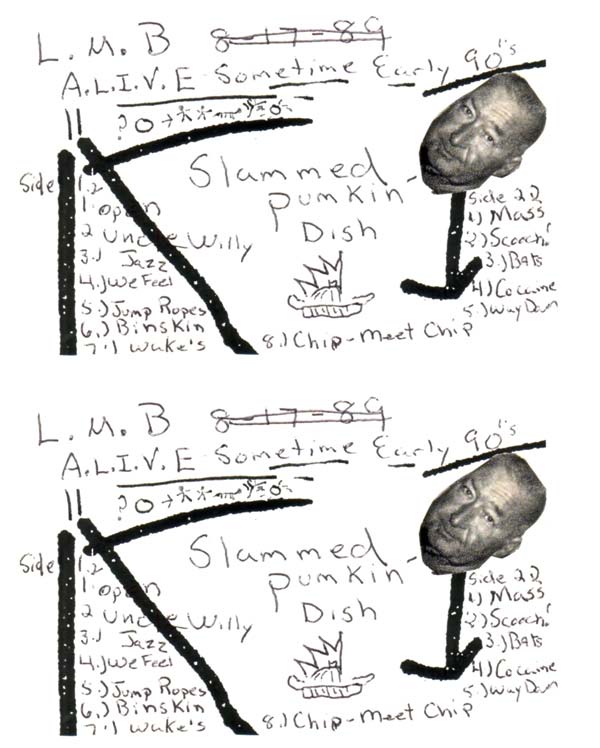 L.M.B 8-17-89
A.L.I.V.E Sometime Early 90's
?
Slammed
Pumkin
Dish
Side 1.2
1. open
2 Uncle Willy
3.) Jazz
4.) We Feel
5.) Jump Ropes
6.) Binskin
7.) Wake's
8.) Chip-Meet Chip
Side 2.2
1) Mass
2) Scorch!
3.) Bats
4.) Cocaine
5.) Way Down
L.M.B 8-17-89
A.L.I.V.E Sometime Early 90's
?
Slammed
Pumkin
Dish
Side 1.2
1. open
2 Uncle Willy
3.) Jazz
4.) We Feel
5.) Jump Ropes
6.) Binskin
7.) Wake's
8.) Chip-Meet Chip
Side 2.2
1) Mass
2) Scorch!
3.) Bats
4.) Cocaine
5.) Way Down